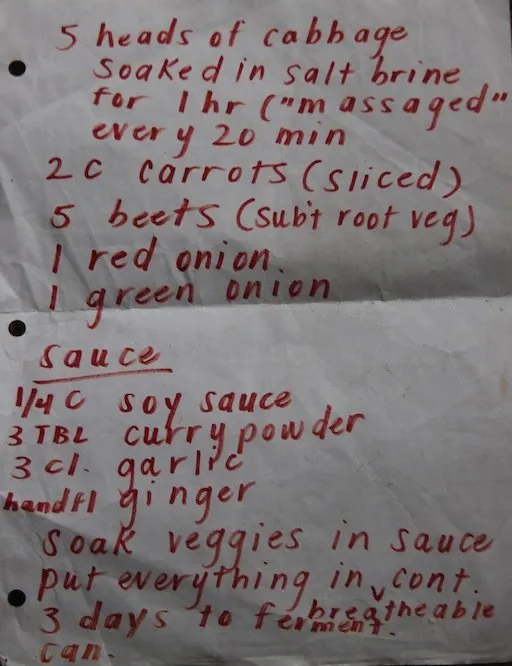 5 heads of cabbage
soaked in salt brine
for 1 hr ("massaged"
every 20 min
2 C carrots (sliced)
5 beets (sub't root veg)
1 red onion.
1 green onion
sauce
1/4 C soy sauce
3 TBL curry powder
3 cl. garlic
handfl ginger
soak veggies in sauce
put everything in ˬ cont.
breatheable
3 days to ferment.
can.